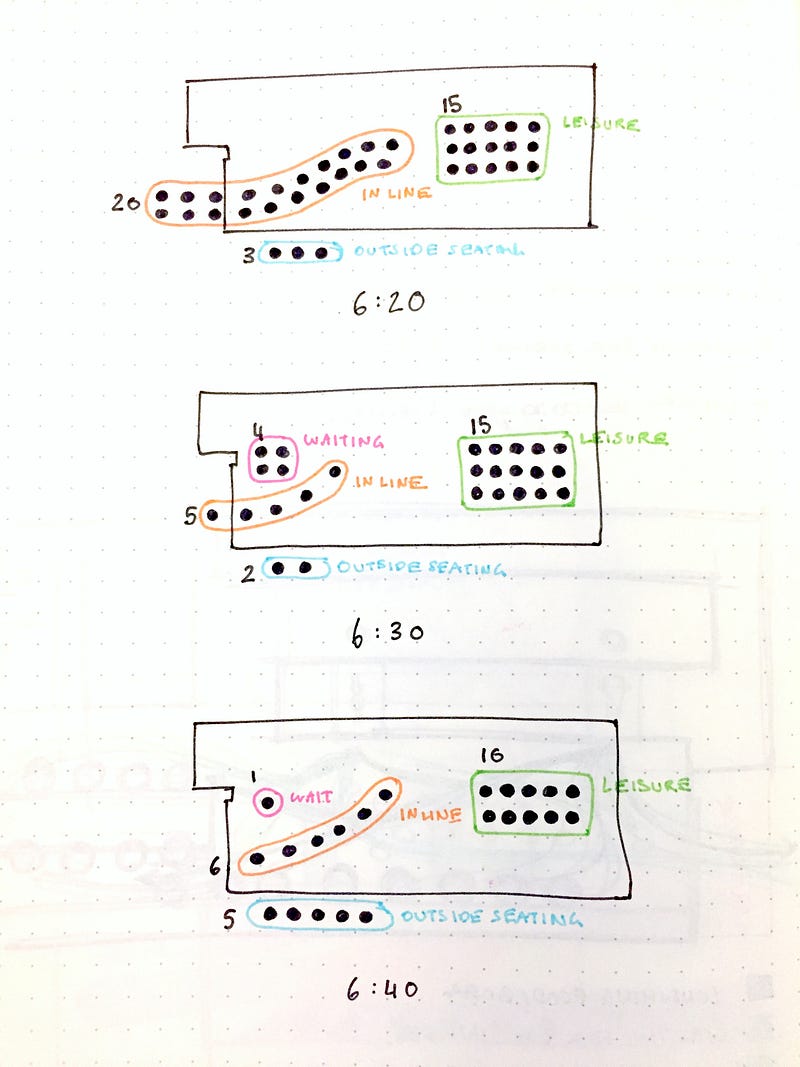 15
LEISURE
20
IN LINE
3
OUTSIDE SEATING
6:20
4
WAITING
15
LEISURE
IN LINE
5
2
OUTSIDE SEATING
6:30
1
WAIT
16
LEISURE
IN LINE
6
5
OUTSIDE SEATING
6:40